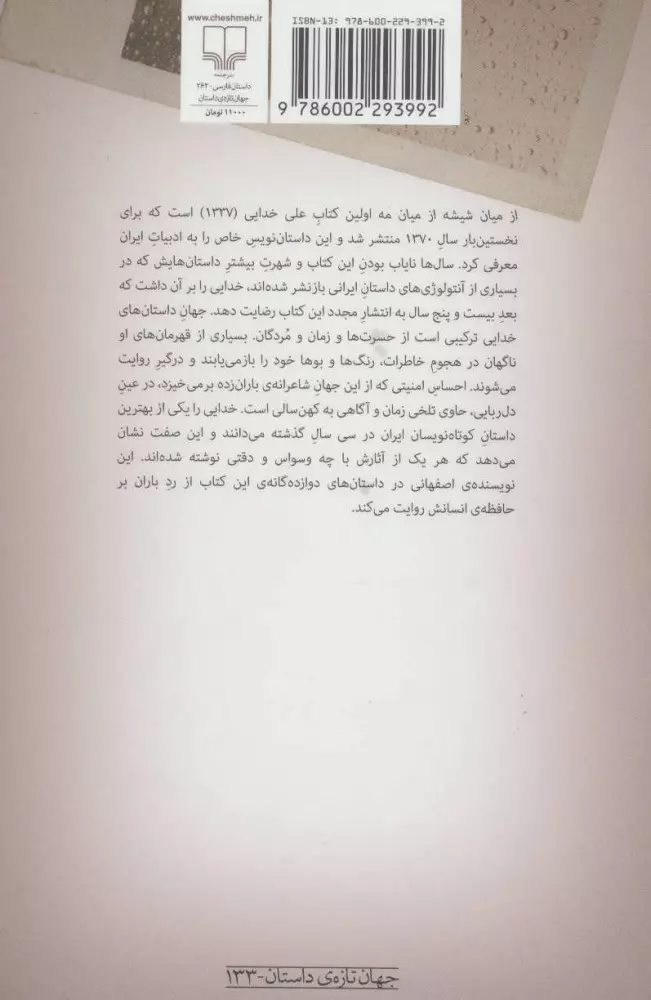 www.cheshmeh.ir
نشرچشمه
داستان فارسی-۲۶۲
جهان‌تازه‌ی داستان
۱۱۰۰۰ تومان
ISBN-13: 978-600-229-399-2
9 786002 293992
از میان شیشه از میان مه اولین کتابِ علی خدایی (۱۳۳۷) است که برای
نخستین‌بار سالِ ۱۳۷۰ منتشر شد و این داستان‌نویسِ خاص را به ادبیاتِ ایران
معرفی کرد. سال‌ها نایاب بودنِ این کتاب و شهرتِ بیشترِ داستان‌هایش که در
بسیاری از آنتولوژی‌های داستانِ ایرانی بازنشر شده‌اند، خدایی را بر آن داشت که
بعدِ بیست و پنج سال به انتشارِ مجدد این کتاب رضایت دهد. جهانِ داستان‌های
خدایی ترکیبی است از حسرت‌ها و زمان و مُردگان. بسیاری از قهرمان‌های او
ناگهان در هجومِ خاطرات، رنگ‌ها و بوها خود را بازمی‌یابند و درگیرِ روایت
می‌شوند. احساسِ امنیتی که از این جهانِ شاعرانه‌ی باران‌زده برمی‌خیزد، در عینِ
دل‌ربایی، حاوی تلخی زمان و آگاهی به کهن‌سالی است. خدایی را یکی از بهترین
داستانِ کوتاه‌نویسان ایران در سی سالِ گذشته می‌دانند و این صفت نشان
می‌دهد که هر یک از آثارش با چه وسواس و دقتی نوشته شده‌اند. این
نویسنده‌ی اصفهانی در داستان‌های دوازده‌گانه‌ی این کتاب از ردِ باران بر
حافظه‌ی انسانش روایت می‌کند.
جهان تازه‌ی داستان-۱۳۳